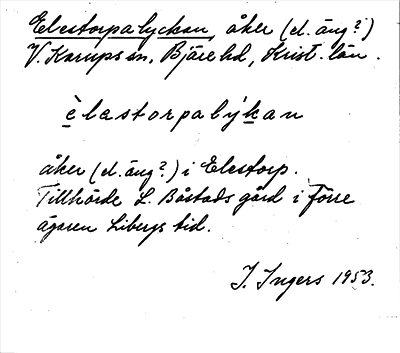 Elestorpalyckan, åker (el. äng?)
V. Karups sn, Bjäre hd, Krist. län.
èlæstorpalýkan
åker (el. äng?) i Elestorp.
Tillhörde L. Båstads gård i förre
ägaren Libergs tid.
I. Ingers 1953.